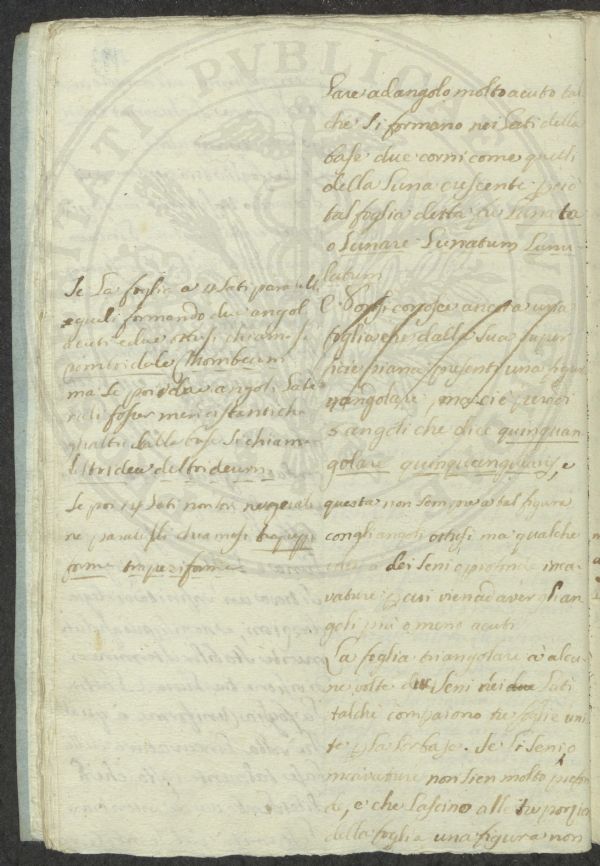 lare ad angolo molto acuto tal
che si formano nei lati della
base due corni come quelli
della Luna crescente però
tal foglia detta Lunata
o Lunare Lunatum Lunu
latum
conosce ancora una
foglia che dalla sua super
ficie piana presenti una figura
5 angoli che dice quinquan
golare quinquangularis, e
questa non sempre a tal figura
con gli angoli ottusi ma qualche
dei seni o profonde inca
vature e così viene ad aver gli an
goli più o meno acuti
La foglia triangolare à alcu
ne volte seni nei lati
talchè compaiono tre foglie uni
te p la lor base. Se li seni o
incavature non sien molto profon
de, e che lascino alle tre porzio
della foglia una figura non
Se la foglia a 4 lati paralelli
equali formando due angol
acuti e due ottusi chiamasi
romboidale Rhombeum
ma se poi due angoli late
rali fosser meno distanti che
gli altri dalla base si chiam
deltoidea deltoideum
se poi i 4 lati non son ne eguali
ne paralelli chiamasi trapezi
forme trapeziforme